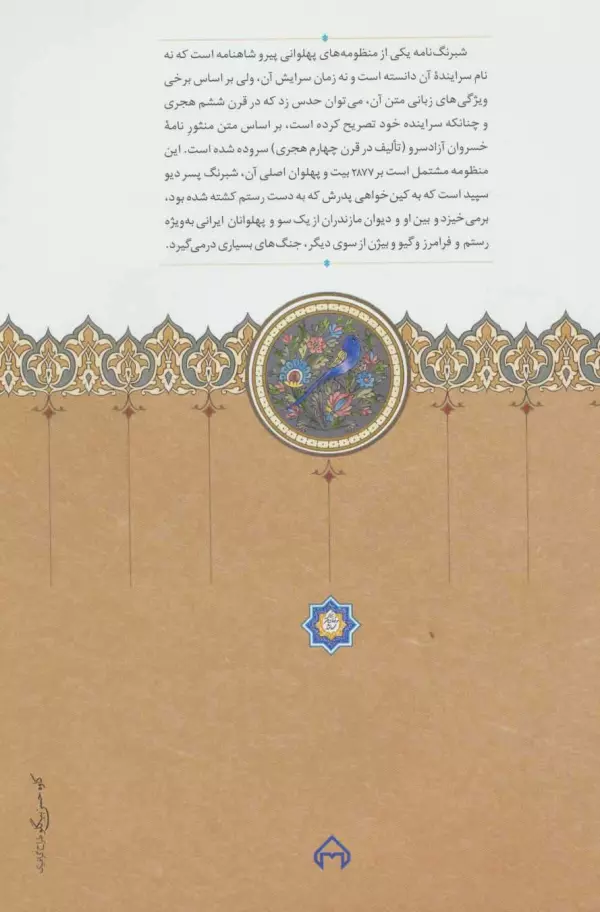 شبرنگ‌نامه یکی از منظومه‌های پهلوانی پیرو شاهنامه است که نه
نام سرایندهٔ آن دانسته است و نه زمان سرایش آن، ولی بر اساس برخی
ویژگی‌های زبانی متن آن، می‌توان حدس زد که در قرن ششم هجری
و چنانکه سراینده خود تصریح کرده است، بر اساس متن منثورِ نامهٔ
خسروان آزادسرو (تألیف در قرن چهارم هجری) سروده شده است. این
منظومه مشتمل است بر ۲۸۷۷ بیت و پهلوان اصلی آن، شبرنگ پسر دیو
سپید است که به کین‌خواهی پدرش که به دست رستم کشته شده بود،
برمی‌خیزد و بین او و دیوان مازندران از یک سو و پهلوانان ایرانی به‌ویژه
رستم و فرامرز و گیو و بیژن از سوی دیگر، جنگ‌های بسیاری درمی‌گیرد.
کاوه حسن بیگلو طراح گرافیک